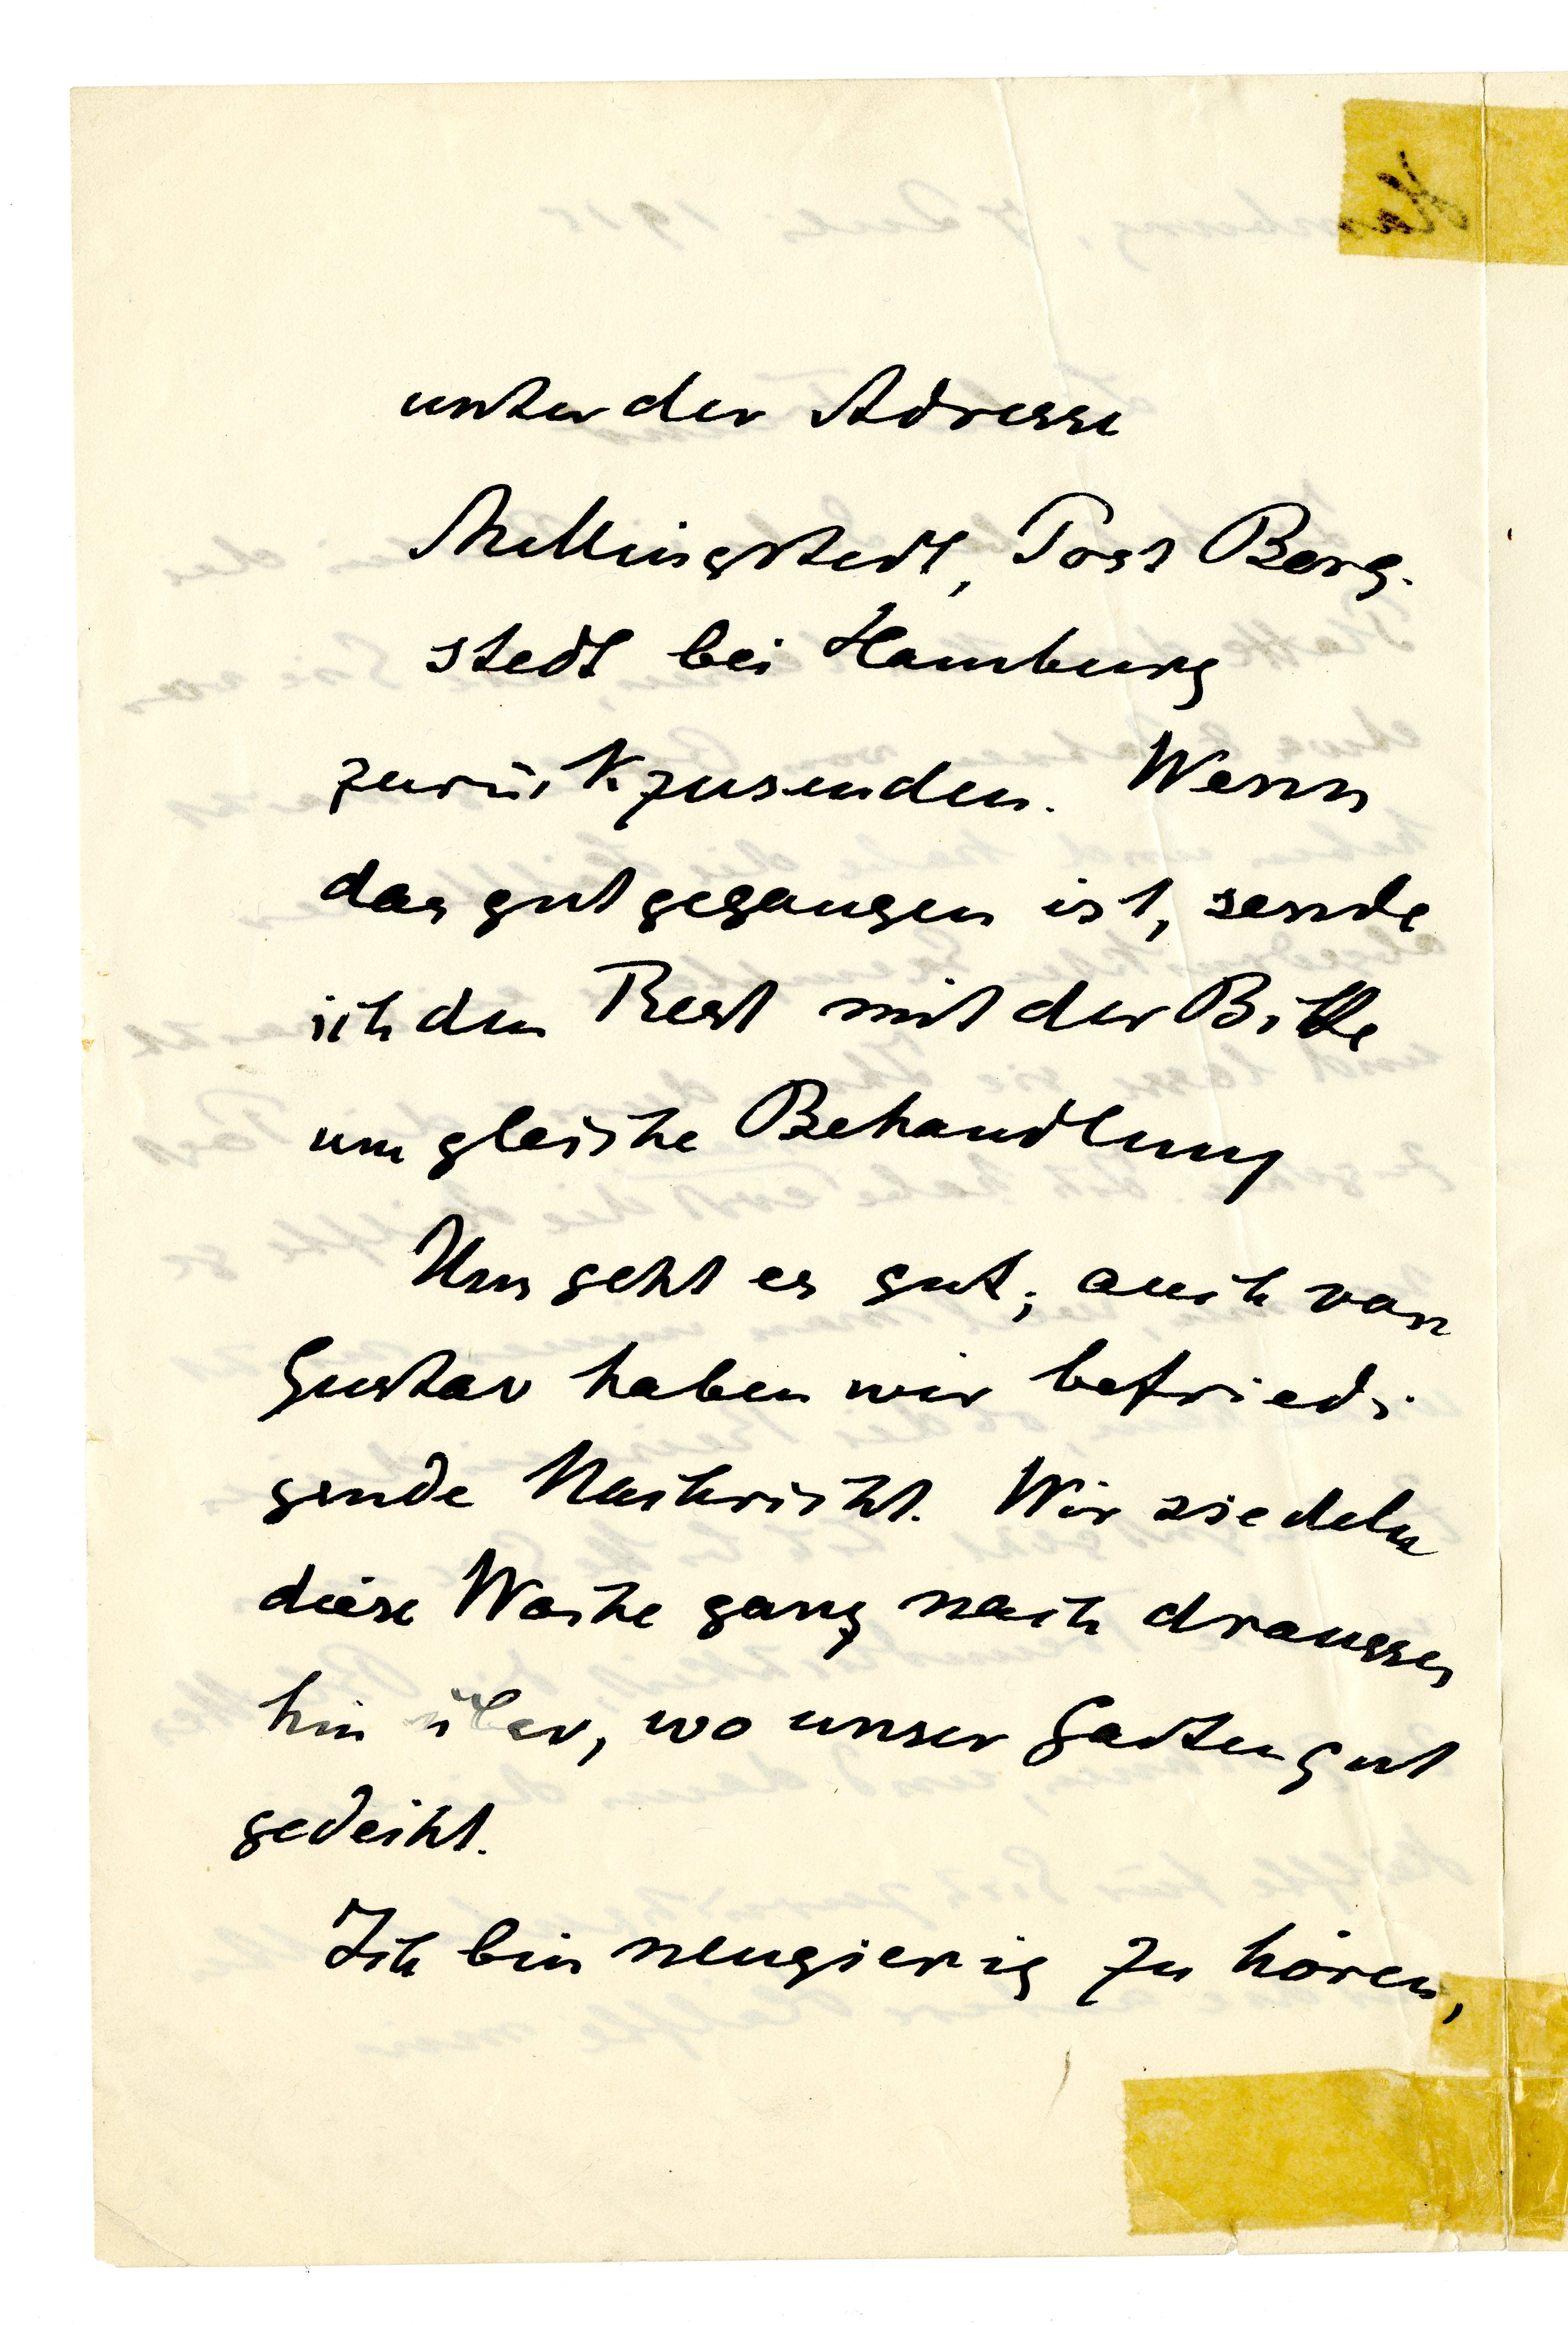 unter der Adresse
Mellingstedt, Post Berg-
stedt bei Hamburg
zurückzusenden. Wenn
das gut gegangen ist, sende
ich den Rest mit der Bitte
um gleiche Behandlung
Uns geht es gut; auch von
Gustav haben wir befriedi
gende Nachricht. Wir siedeln
diese Woche ganz nach draussen
hin über, wo unser Garten gut
gedeiht.
Ich bin neugierig zu hören,